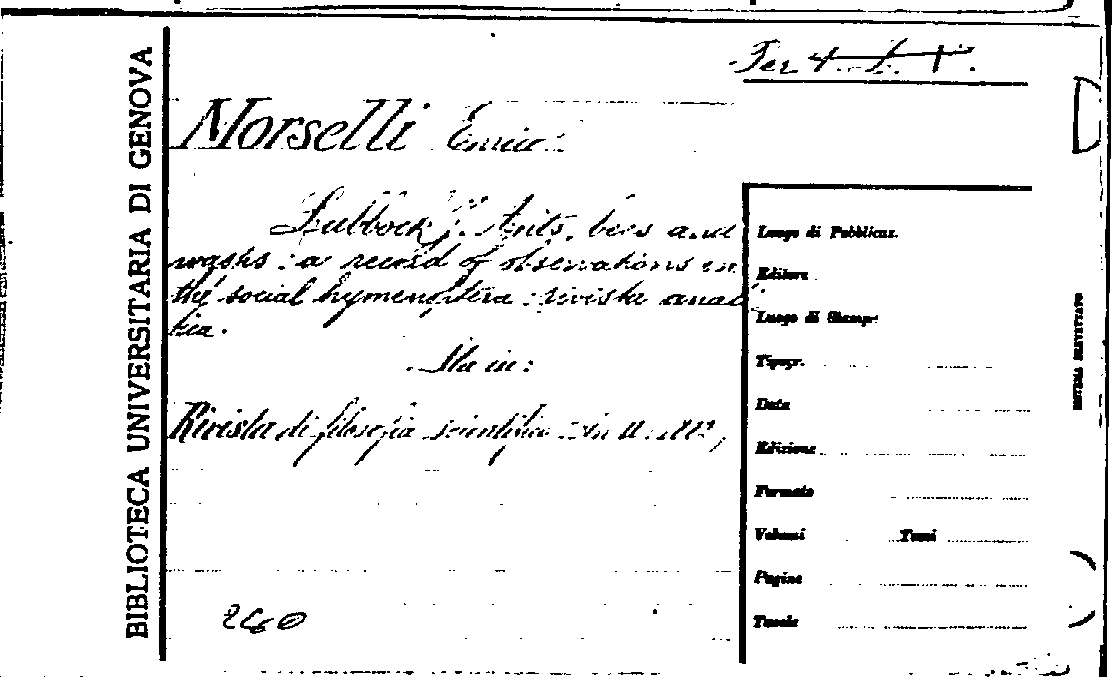 BIBLIOTECA UNIVERSITARIA DI GENOVA
Per 4. L. 1.
Morselli Enrico
Lubbock J. Ants, bees and
wasps: a record of observations on
the social hymenoptera: rivista
Sta in:
Rivista di filosofia scientifica
260
Luogo di Pubblicaz.
Editore
Luogo di Stampa
Tipogr.
Data
Edizione
Formato
Volumi Tomi
Pagine
Tavole
SISTEMA BREVETTATO